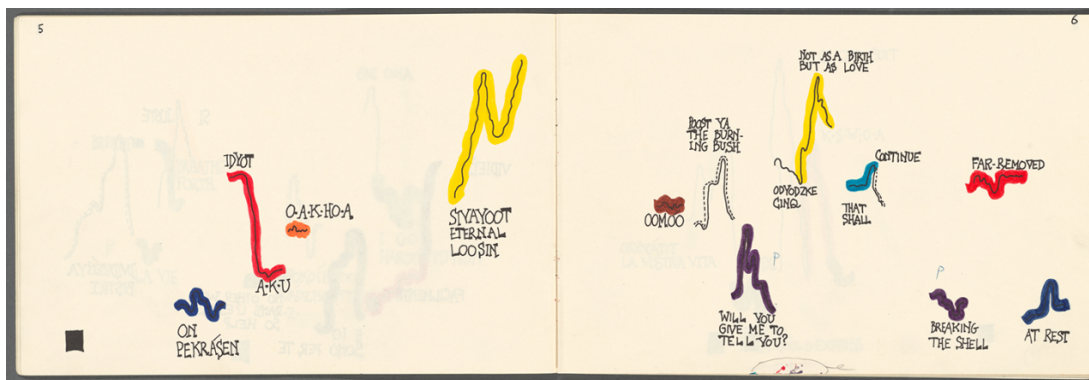 5
IDYOT
O·A·K·HO·A
A·K·U
ON
PEKRÁSEN
SIVAYOOT
ETERNAL
LOOSIN
6
NOT AS A BIRTH
BUT AS LOVE
THE BURN-
ING BUSH
OOMOO
ODYODZKE
CINQ
CONTINUE
THAT
SHALL
FAR-REMOVED
P
WILL YOU
GIVE ME TO
TELL YOU?
P
BREAKING
THE SHELL
AT REST